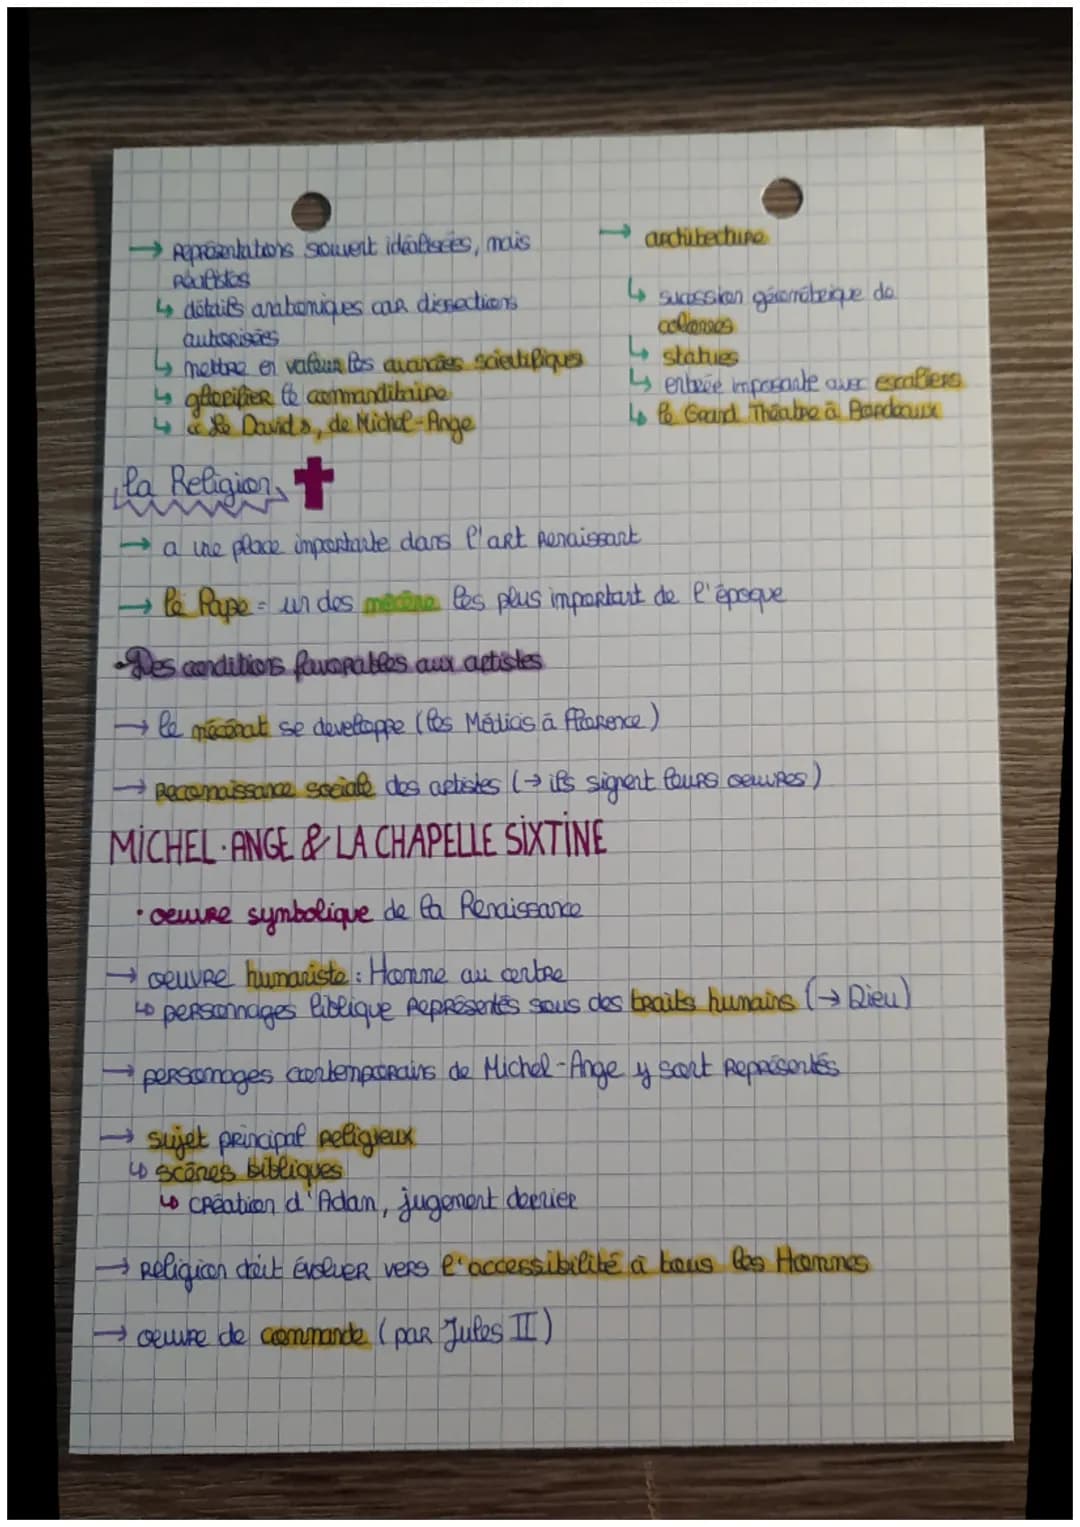 → représentations souvent idéalisées, mais
réalistes
↳ détails anatomiques car dissections
autorisées
↳ mettre en valeur les avancées scientifiques
↳ glorifier le commanditaire
↳ « Le David », de Michel-Ange
→ architecture
↳ sucession géométrique de
colonnes
↳ statues
↳ entrée imposante avec escaliers
↳ le Grand Théatre à Bordeaux
la Religion
→ a une place importante dans l'art renaissant
→ le Pape = un des mécène les plus important de l'époque
-Des conditions favorables aux artistes
→ le mécénat se developpe (les Médicis à Florence)
→ reconnaissance sociale des artistes (→ ils signent leurs oeuvres)
MICHEL-ANGE & LA CHAPELLE SIXTINE
• oeuvre symbolique de la Renaissance
→ oeuvre humaniste : Homme au centre
↳ personnages biblique représentés sous des traits humains (→ Dieu)
→ personnages contemporains de Michel-Ange y sont représentés
→ sujet principal religieux
↳ scènes bibliques
↳ création d'Adam, jugement dernier
→ religion doit évoluer vers l'accessibilité à tous les Hommes
→ oeuvre de commande (par Jules II)